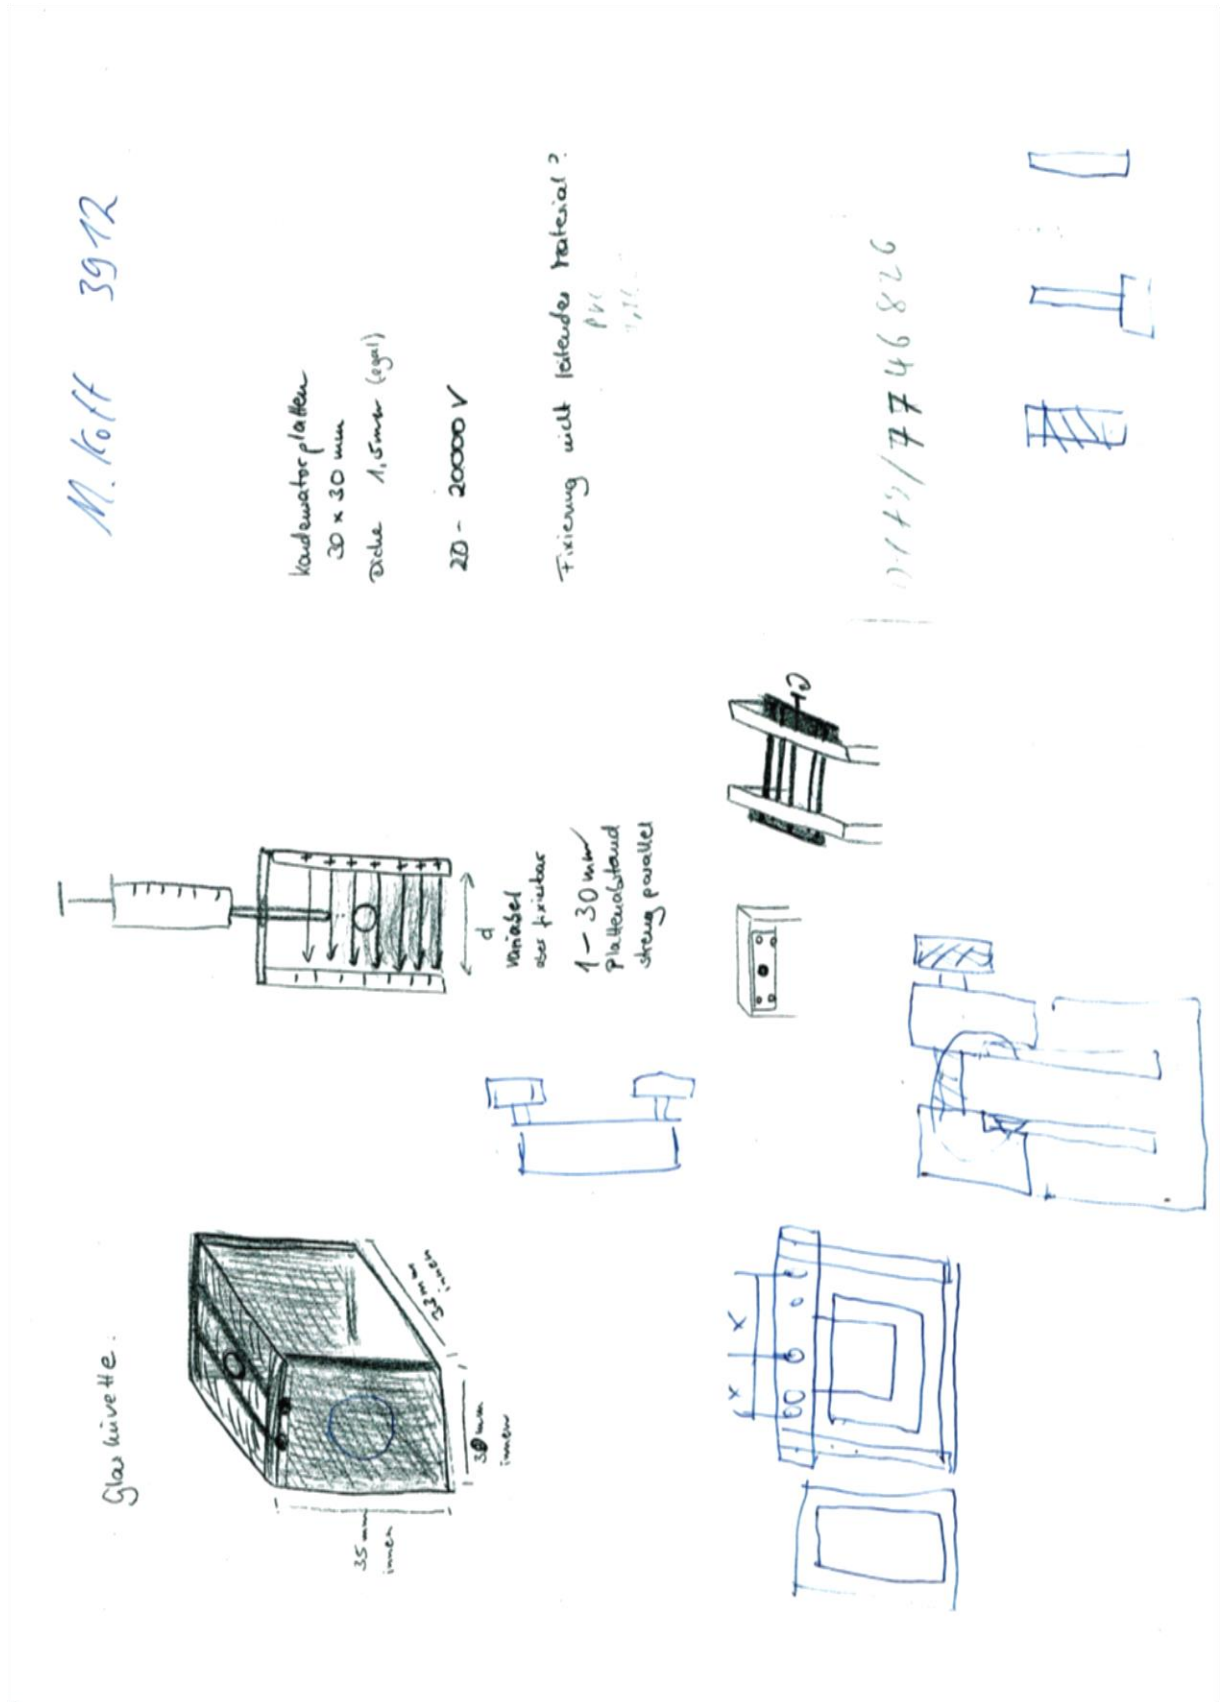 M. Koff 3912
Glasküvette:
35 mm
innen
30 mm
innen
33 mm
innen
d
variabel
aber fixierbar
1 – 30 mm
Plattenabstand
streng parallel
Kondensatorplatten
30 x 30 mm
Dicke 1,5 mm (egal)
20 – 20000 V
Fixierung nicht leitendes Material?
PVC
x x